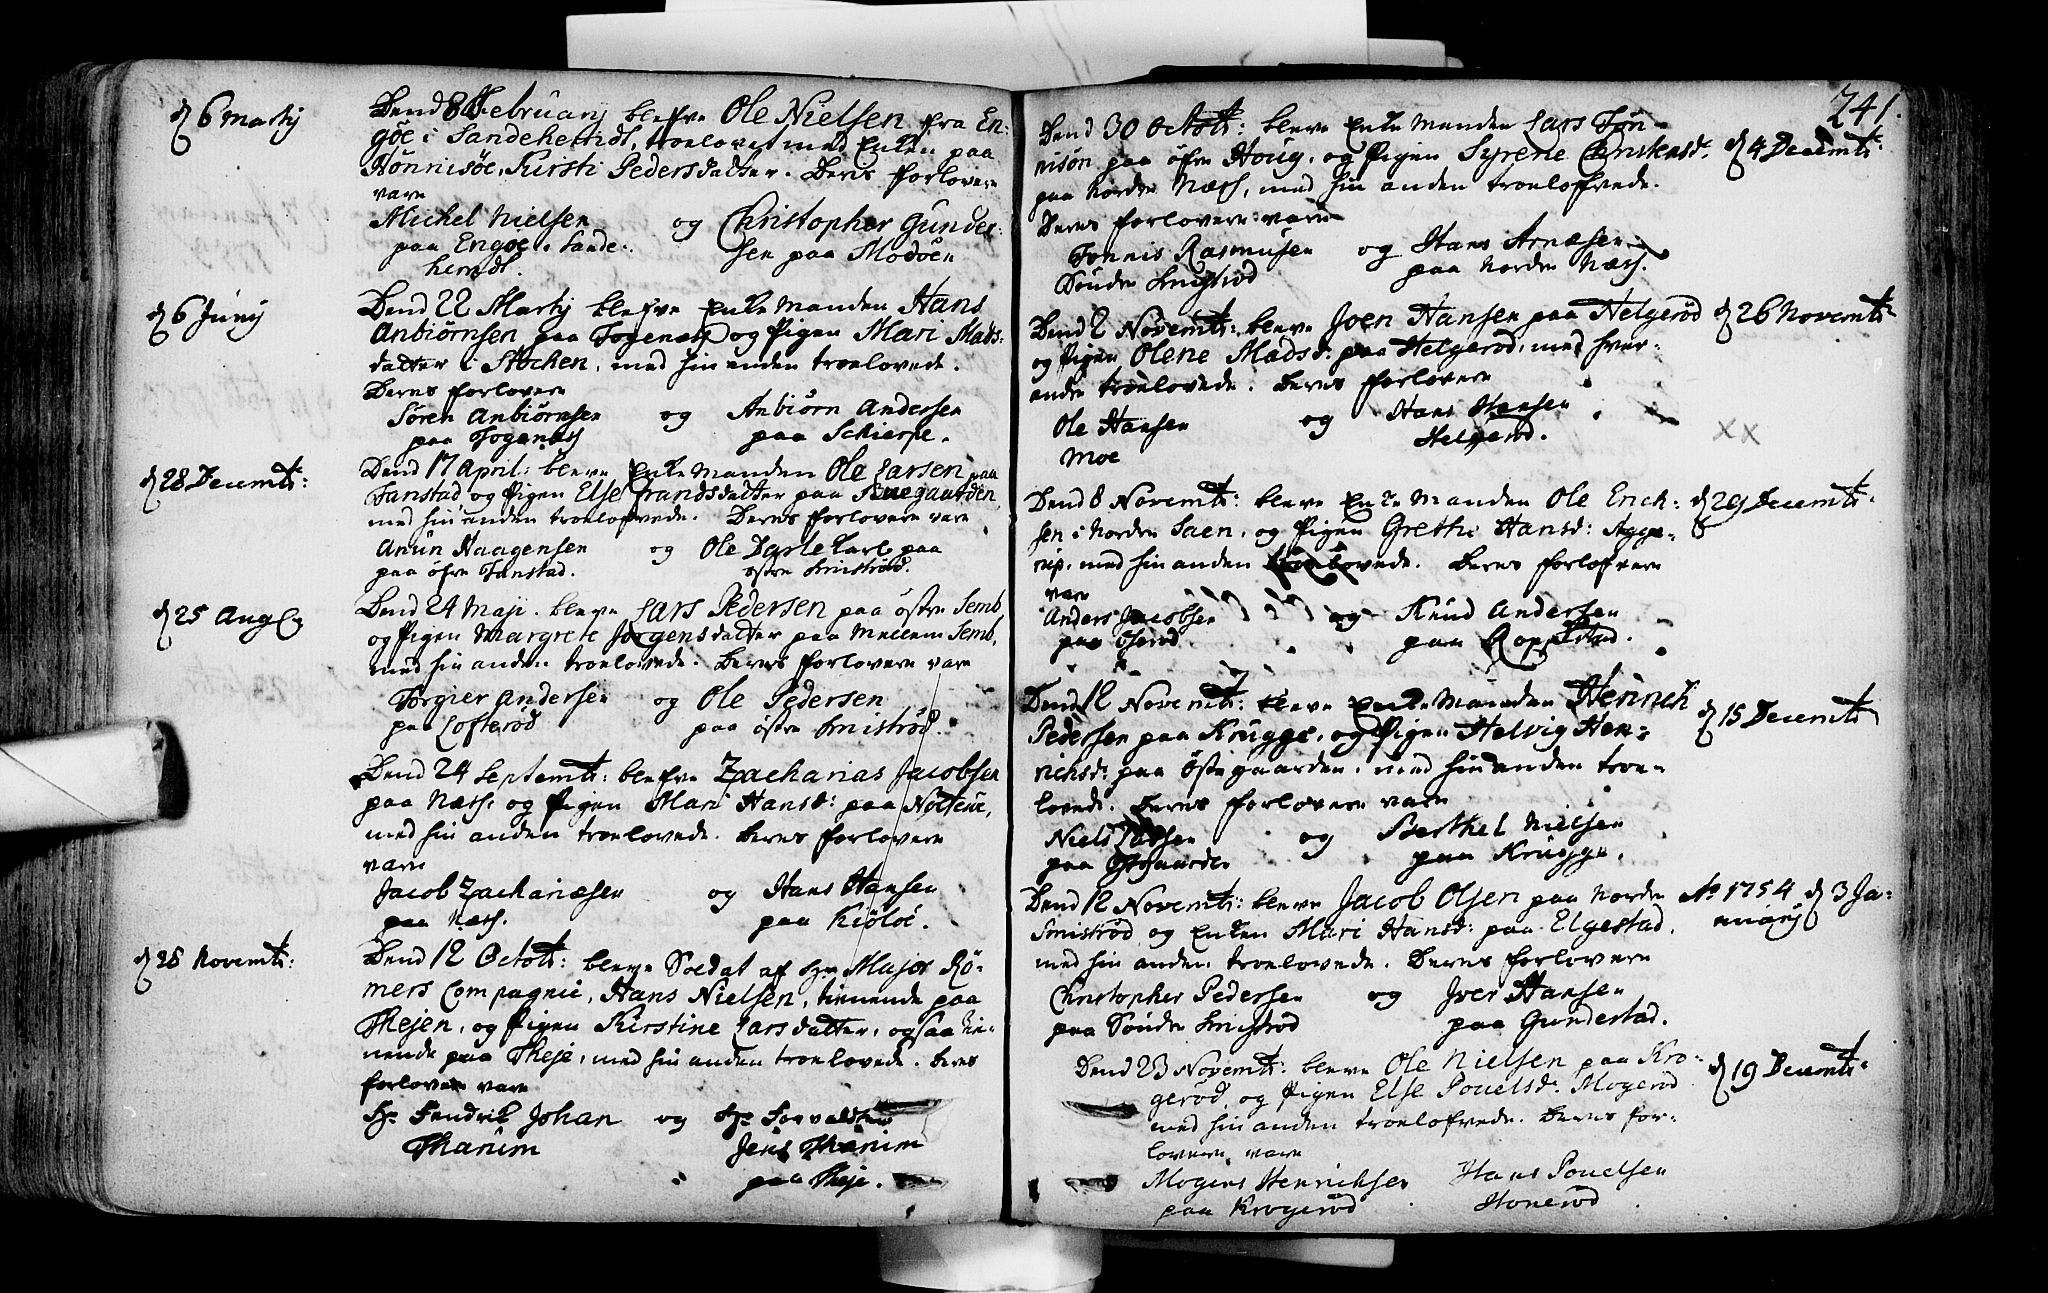 d 6 Martij
Dend 8 Februarij blefve Ole Nielsen fra En:
göe i Sandeherridt, troelovet med Enken paa
Hönnisöe, Kirsti Pedersdatter. Deres forlovere
vare
Michel Nielsen og Christopher Gunder:
paa Engöe i Sande: sen paa Modöen
herridt.
d 6 Junij
Dend 22 Martij blefve Enke Manden Hans
Anbiörnsen paa Fogenæss og Pigen Mari Mads:
datter i Stochen, med hin anden troelovede.
Deres forlovere
Sören Anbiörnsen og Anbiörn Andersen
paa Fogenæss paa Schierpe.
d 28 Decembr:
Dend 17 April: bleve Enke Manden Ole Larsen paa
Fanstad og Pigen Else Frandsdatter paa
med hin anden troelofvede. Deres forlovere vare
Anun Haagensen og Ole Carl paa
paa öfre Fanstad. östre Smiströd.
d 25 Aug
Dend 24 Maji bleve Lars Pedersen paa östre Semb
og Pigen Margrete Jörgensdatter paa Mellem Semb,
med hin anden troelovede. Deres forlovere vare
Torgier Andersen og Ole Pedersen
paa Lofteröd paa östre Smiströd.
Dend 24 Septembr: blefve Zacharias Jacobsen
paa Næss og Pigen Mari Hansd: paa Nöteröe,
med hin anden troelovede. Deres forlovere
vare
Jacob Zachariæsen og Hans Hansen
paa Næss. paa Kiölöe.
d 28 Novembr:
Dend 12 Octobr: bleve Soldat af Hr Major Rö:
mers Compagnie, Hans Nielsen, tienende paa
Thejen, og Pigen Kirstine Larsdatter, ogsaa tie:
nende paa Theje, med hin anden troelovede. Deres
forlovere vare
Hr. Fendrik Johan og Hr. Forvalter
Thanum Jens Thanum
paa Theje.
241.
Dend 30 Octobr: bleve Enke Manden Lars Tön-
nisön paa öfre Houg, og Pigen Syrene Christensd.
paa Nordre Næss, med hin anden troelofvede.
Deres forlovere vare
Tönnis Rasmusen og Hans Arnæsen
Söndre Smiströd paa Nordre Næss.
d 4 Decembr:
Dend 2 Novembr: bleve Joen Hansen paa Helgeröd
og Pigen Olene Madsd: paa Helgeröd, med hver-
andre troelovede. Deres forlovere
Ole Hansen og Hans Hansen
Moe Helgeröd.
d 26 Novembr:
xx
Dend 8 Novembr: bleve Enke Manden Ole Erich:
sen i Nordre Saen, og Pigen Grethe Hansd: Agge-
rup, med hin anden troelovede. Deres forlofvere
vare
Anders Jacobsen og Knud Andersen
paa paa Roppestad.
d 29 Decembr:
Dend 12 Novembr: bleve Enke Manden Henrich
Pedersen paa Krugge, og Pigen Helvig Hen:
richsd: paa Östegaarden, med hin anden troe-
lovede. Deres forlovere vare
Niels og Berthel Nielsen
paa paa Krugge.
d 15 Decembr
Dend 12 Novembr: bleve Jacob Olsen paa Nordre
Smiströd og Enken Mari Hansd: paa Elgestad,
med hin anden troelovede. Deres forlovere
Christopher Pedersen og Iver Hansen
paa Söndre Smiströd paa Gundestad.
Ao 1754 d 3 Ja-
nuarij
Dend 23 Novembr: bleve Ole Nielsen paa Kro-
geröd, og Pigen Else Pouelsd. Mogeröd
med hin anden troelofvede. Deres for-
lovere vare
Mogens Henrichsen Hans Pouelsen
paa Krogeröd Honeröd
d 19 Decembr: